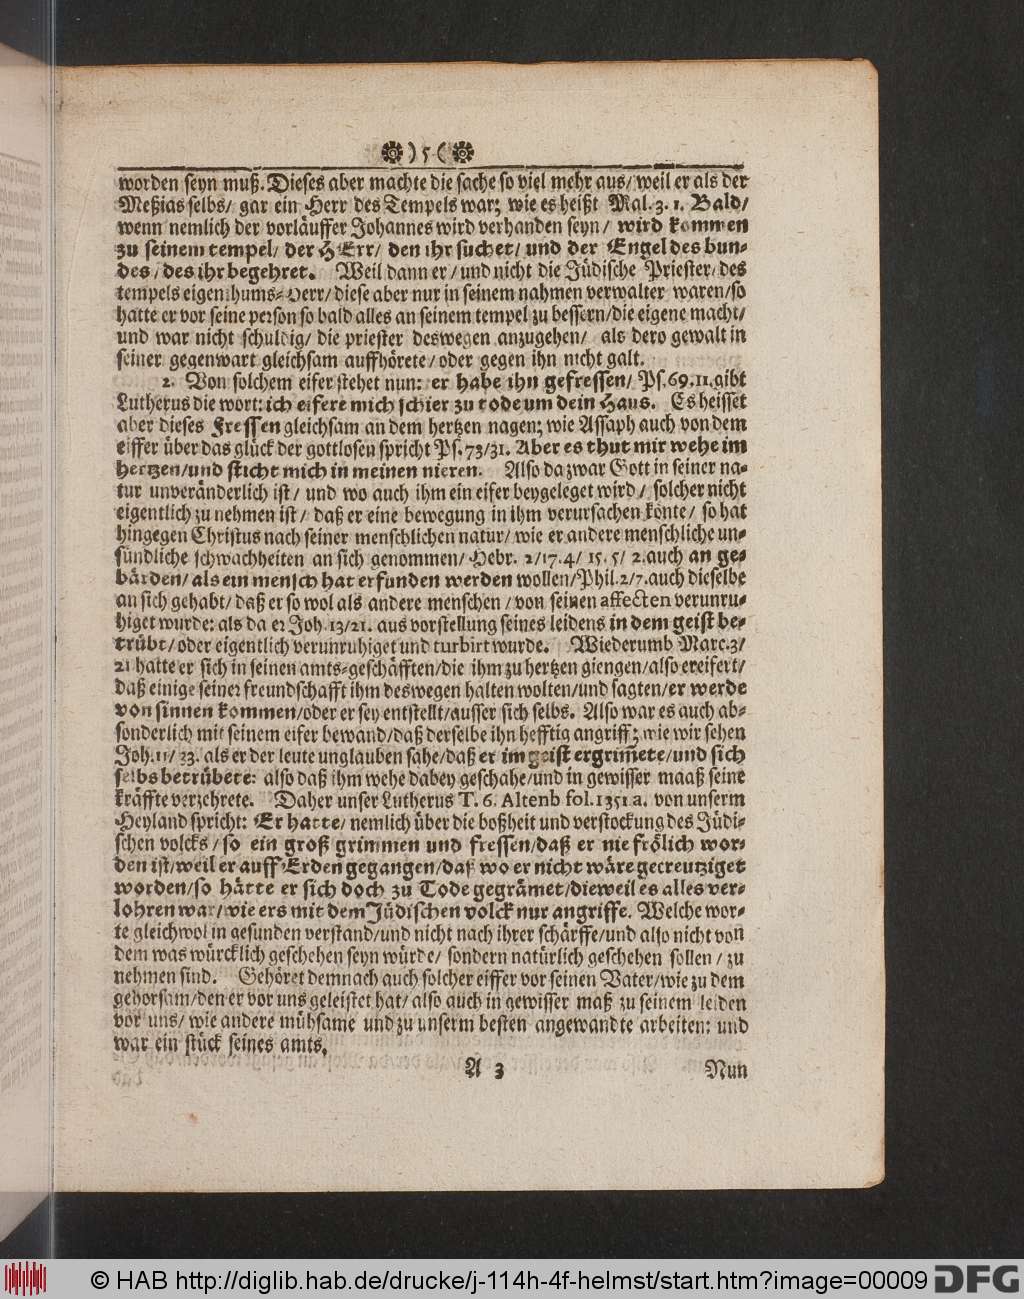 )5(
worden seyn muß. Dieses aber machte die sache so viel mehr aus/ weil er als der
Meßias selbs/ gar ein Herr des Tempels war; wie es heißt Mal. 3. 1. Bald/
wenn nemlich der vorläuffer Johannes wird verhanden seyn/ wird kommen
zu seinem tempel/ der HErr/ den ihr suchet/ und der Engel des bun-
des/ des ihr begehret. Weil dann er/ und nicht die Jüdische Priester/ des
tempels eigenthums-Herr/ diese aber nur in seinem nahmen verwalter waren/ so
hatte er vor seine person so bald alles an seinem tempel zu bessern/ die eigene macht/
und war nicht schuldig/ die priester deswegen anzugehen/ als dero gewalt in
seiner gegenwart gleichsam auffhörete/ oder gegen ihn nicht galt.
2. Von solchem eifer stehet nun: er habe ihn gefressen/ Ps. 69. 11. gibt
Lutherus die wort: ich eifere mich schier zu tode um dein Haus. Es heisset
aber dieses Fressen gleichsam an dem hertzen nagen; wie Assaph auch von dem
eiffer über das glück der gottlosen spricht Ps. 73/31. Aber es thut mir wehe im
hertzen/ und sticht mich in meinen nieren. Also da zwar Gott in seiner na-
tur unveränderlich ist/ und wo auch ihm ein eifer beygeleget wird/ solcher nicht
eigentlich zu nehmen ist/ daß er eine bewegung in ihm verursachen könte/ so hat
hingegen Christus nach seiner menschlichen natur/ wie er andere menschliche un-
sündliche schwachheiten an sich genommen/ Hebr. 2/17. 4/ 15. 5/ 2. auch an ge-
bärden/ als ein mensch hat erfunden werden wollen/ Phil. 2/7. auch dieselbe
an sich gehabt/ daß er so wol als andere menschen/ von seinen affecten verunru-
higet wurde: als da er Joh. 13/21. aus vorstellung seines leidens in dem geist be-
trübt/ oder eigentlich verunruhiget und turbirt wurde. Wiederumb Marc. 3/
21 hatte er sich in seinen amts-geschäfften/ die ihm zu hertzen giengen/ also ereifert/
daß einige seiner freundschafft ihm deswegen halten wolten/ und sagten/ er werde
von sinnen kommen/ oder er sey entstellt/ ausser sich selbs. Also war es auch ab-
sonderlich mit seinem eifer bewand/ daß derselbe ihn hefftig angriff; wie wir sehen
Joh. 11/ 33. als er der leute unglauben sahe/ daß er im geist ergrim̄ete/ und sich
selbs betrübete: also daß ihm wehe dabey geschahe/ und in gewisser maaß seine
kräffte verzehrete. Daher unser Lutherus T. 6. Altenb fol. 1351 a. von unserm
Heyland spricht: Er hatte/ nemlich über die boßheit und verstockung des Jüdi-
schen volcks/ so ein groß grimmen und fressen/ daß er nie frölich wor-
den ist/ weil er auff Erden gegangen/ daß wo er nicht wäre gecreutziget
worden/ so hätte er sich doch zu Tode gegrämet/ dieweil es alles ver-
lohren war/ wie ers mit dem Jüdischen volck nur angriffe. Welche wor-
te gleichwol in gesunden verstand/ und nicht nach ihrer schärffe/ und also nicht von
dem was würcklich geschehen seyn würde/ sondern natürlich geschehen sollen/ zu
nehmen sind. Gehöret demnach auch solcher eiffer vor seinen Vater/ wie zu dem
gehorsam/ den er vor uns geleistet hat/ also auch in gewisser maß zu seinem leiden
vor uns/ wie andere mühsame und zu unserm besten angewandte arbeiten: und
war ein stück seines amts.
A 3 Nun
© HAB http://diglib.hab.de/drucke/j-114h-4f-helmst/start.htm?image=00009 DFG